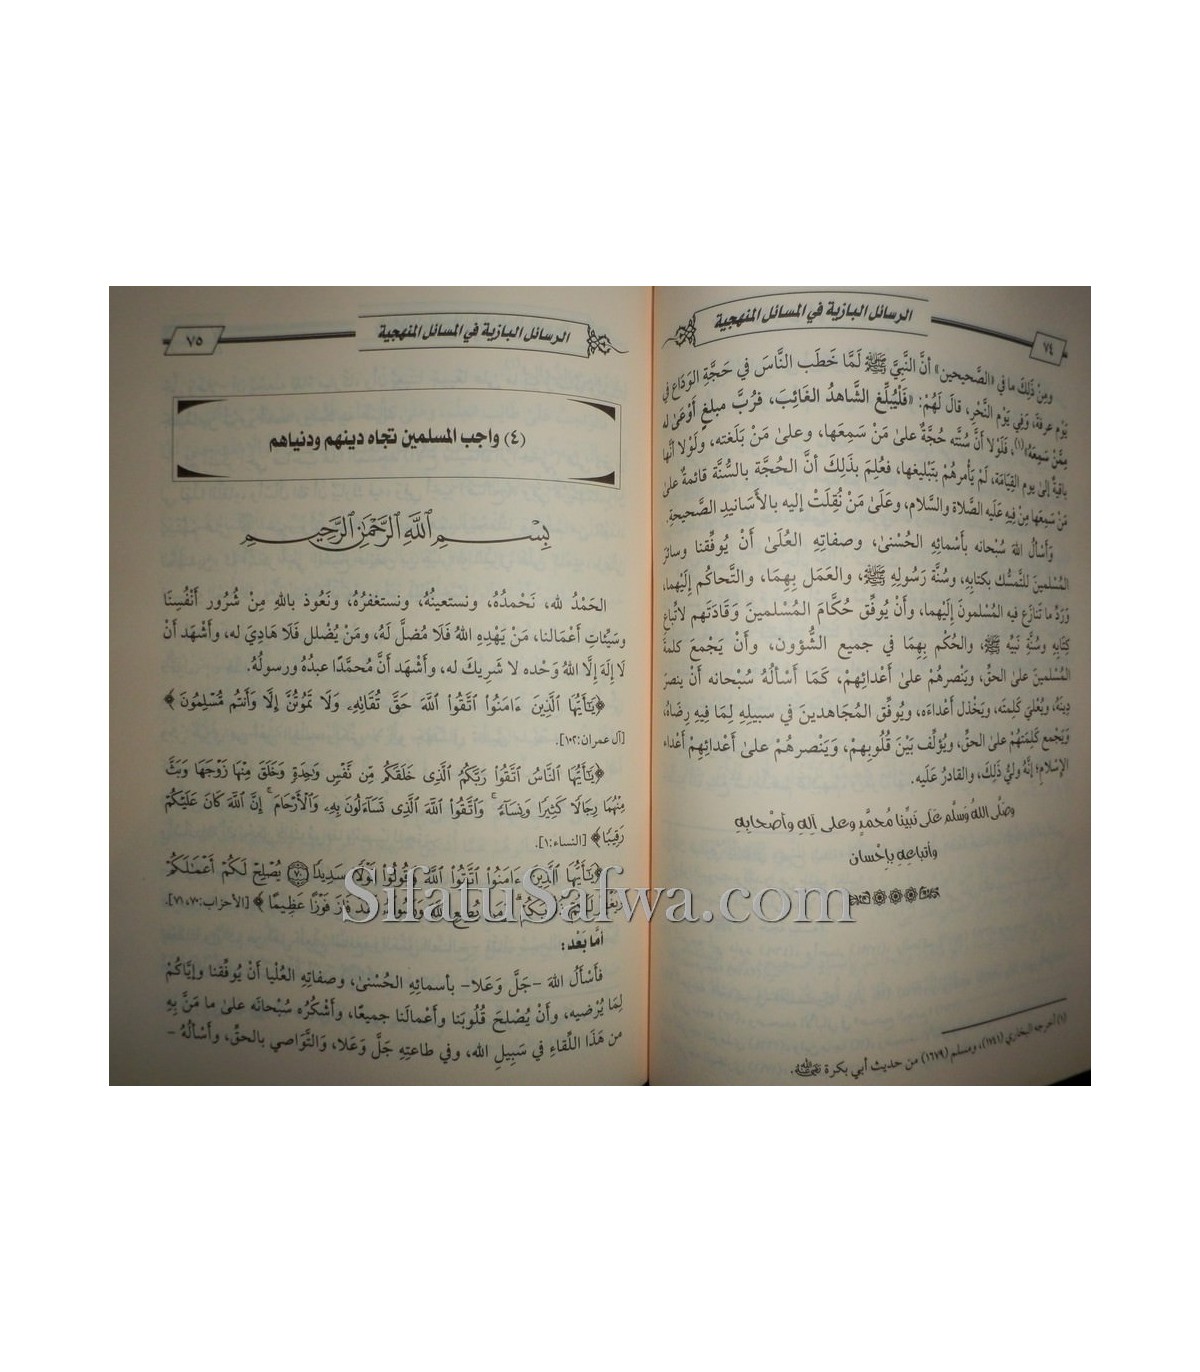 ٧٤
الرسائل البازية في المسائل المنهجية
ومِنْ ذَلِكَ ما في «الصَّحيحين» أنَّ النَّبيَّ ﷺ لَمَّا خَطَب النَّاسَ في حَجَّةِ الوَدَاعِ في
يَوْمِ عرفةَ، وَفي يَوْم النَّحْرِ، قالَ لَهُمْ: «فَلْيُبلِّغ الشَّاهدُ الغَائِبَ، فَرُبَّ مبلغٍ أَوْعَىٰ له
مِمَّنْ سَمِعَهُ»(١)، فَلَوْلا أَنَّ سُنَّته حُجَّةٌ علىٰ مَنْ سَمِعَها، وعلىٰ مَنْ بَلَغته، ولَوْلا أنَّها
باقيةٌ إلىٰ يوم القِيَامَة، لَمْ يَأمرهُمْ بِتَبْليغها، فعُلِمَ بذَلِكَ أنَّ الحُجَّة بالسُّنَّة قائمةٌ علىٰ
مَنْ سَمِعَها مِنْ فِيهِ عَلَيه الصَّلاة والسَّلام، وعَلَىٰ مَنْ نُقِلَتْ إليه بالأَسَانيدِ الصَّحيحةِ.
وَأَسْأَلُ اللهَ سُبحانه بأسْمائِهِ الحُسْنىٰ، وصفاتِهِ العُلَىٰ أَنْ يُوفِّقنا وسائرَ
المُسْلمينَ للتَّمسُّك بكتابِهِ، وسُنَّة رَسُولِهِ ﷺ، والعَمَل بِهِمَا، والتَّحاكُم إلَيْهما،
وَرَدِّ ما تَنازَع فيه المُسْلمونَ إلَيْهما، وأَنْ يُوفِّق حُكَّامَ المُسْلمينَ وَقَادَتَهم لاتِّباعِ
كِتابِهِ وسُنَّةِ نَبيِّه ﷺ، والحُكْم بِهِمَا في جميع الشُّؤون، وأَنْ يَجْمَعَ كلمةَ
المُسْلمينَ علىٰ الحقِّ، ويَنْصرَهُمْ علىٰ أَعْدائِهِمْ، كَمَا أَسْأَلُهُ سُبْحانه أَنْ ينصرَ
دِينَهُ، ويُعْلَيَ كَلِمتَه، ويَخْذل أَعْداءَه، ويُوفِّق المُجَاهدينَ في سبيلِهِ لِمَا فِيهِ رِضَاهُ،
وَيَجْمع كَلِمَتَهمْ علىٰ الحقِّ، ويُؤلِّف بَيْنَ قُلُوبِهِمْ، ويَنْصرَهُمْ علىٰ أَعْدائِهِمْ أَعْداءِ
الإسْلامِ؛ إنَّهُ وليُّ ذَلِكَ، والقادرُ عَلَيه.
وصَلَّى اللهُ وَسَلَّم عَلَى نَبيِّنا مُحمَّدٍ وعلى آلِهِ وأصْحابِهِ
وأتباعِهِ بإحْسان
(١) أخرجه البخاري (١٧٤١)، ومسلم (١٦٧٩) من حديث أبي بكرة رضي الله عنه.
الرسائل البازية في المسائل المنهجية
٧٥
(٤) واجب المسلمين تجاه دينهم ودنياهم
بِسْمِ ٱللَّهِ ٱلرَّحْمَٰنِ ٱلرَّحِيمِ
الحَمْدُ لله، نَحْمدُهُ، ونستعينُهُ، ونستغفرُهُ، ونَعُوذ باللهِ مِنْ شُرُور أَنْفُسِنَا
وسَيِّئاتِ أَعْمَالنا، مَنْ يَهْدِهِ اللهُ فَلَا مُضلَّ لَهُ، ومَنْ يُضْلل فَلَا هَادِيَ له، وأَشْهَد أَنْ
لَا إِلَهَ إِلَّا اللهُ وَحْده لا شَرِيكَ له، وأَشْهَد أَنَّ مُحَمَّدًا عبدُهُ ورسولُهُ.
﴿يَـٰٓأَيُّهَا ٱلَّذِينَ ءَامَنُوا۟ ٱتَّقُوا۟ ٱللَّهَ حَقَّ تُقَاتِهِۦ وَلَا تَمُوتُنَّ إِلَّا وَأَنتُم مُّسْلِمُونَ﴾
[آل عمران: ١٠٢].
﴿يَـٰٓأَيُّهَا ٱلنَّاسُ ٱتَّقُوا۟ رَبَّكُمُ ٱلَّذِى خَلَقَكُم مِّن نَّفْسٍ وَٰحِدَةٍ وَخَلَقَ مِنْهَا زَوْجَهَا وَبَثَّ
مِنْهُمَا رِجَالًا كَثِيرًا وَنِسَآءً ۚ وَٱتَّقُوا۟ ٱللَّهَ ٱلَّذِى تَسَآءَلُونَ بِهِۦ وَٱلْأَرْحَامَ ۚ إِنَّ ٱللَّهَ كَانَ عَلَيْكُمْ
رَقِيبًا﴾ [النساء: ١].
﴿يَـٰٓأَيُّهَا ٱلَّذِينَ ءَامَنُوا۟ ٱتَّقُوا۟ ٱللَّهَ وَقُولُوا۟ قَوْلًا سَدِيدًا ۝٧٠ يُصْلِحْ لَكُمْ أَعْمَـٰلَكُمْ
وَيَغْفِرْ لَكُمْ ذُنُوبَكُمْ ۗ وَمَن يُطِعِ ٱللَّهَ وَرَسُولَهُۥ فَقَدْ فَازَ فَوْزًا عَظِيمًا﴾ [الأحزاب: ٧٠، ٧١].
SifatuSafwa.com
أمَّا بَعْد:
فَأَسْأَلُ اللهَ -جَلَّ وَعَلا- بأسمائِهِ الحُسْنىٰ، وصفاتِهِ العُلْيا أَنْ يُوفِّقنا وإيَّاكُمْ
لِمَا يُرْضيه، وأَنْ يُصْلحَ قُلُوبَنا وأَعْمالَنا جميعًا، وأَشْكُرُه سُبْحانَه علىٰ ما مَنَّ بِهِ
من هَذَا اللِّقاءِ في سَبِيلِ الله، وفي طاعتِهِ جَلَّ وَعَلا، والتَّوَاصي بالحقِّ، وأَسْأَلُهُ -